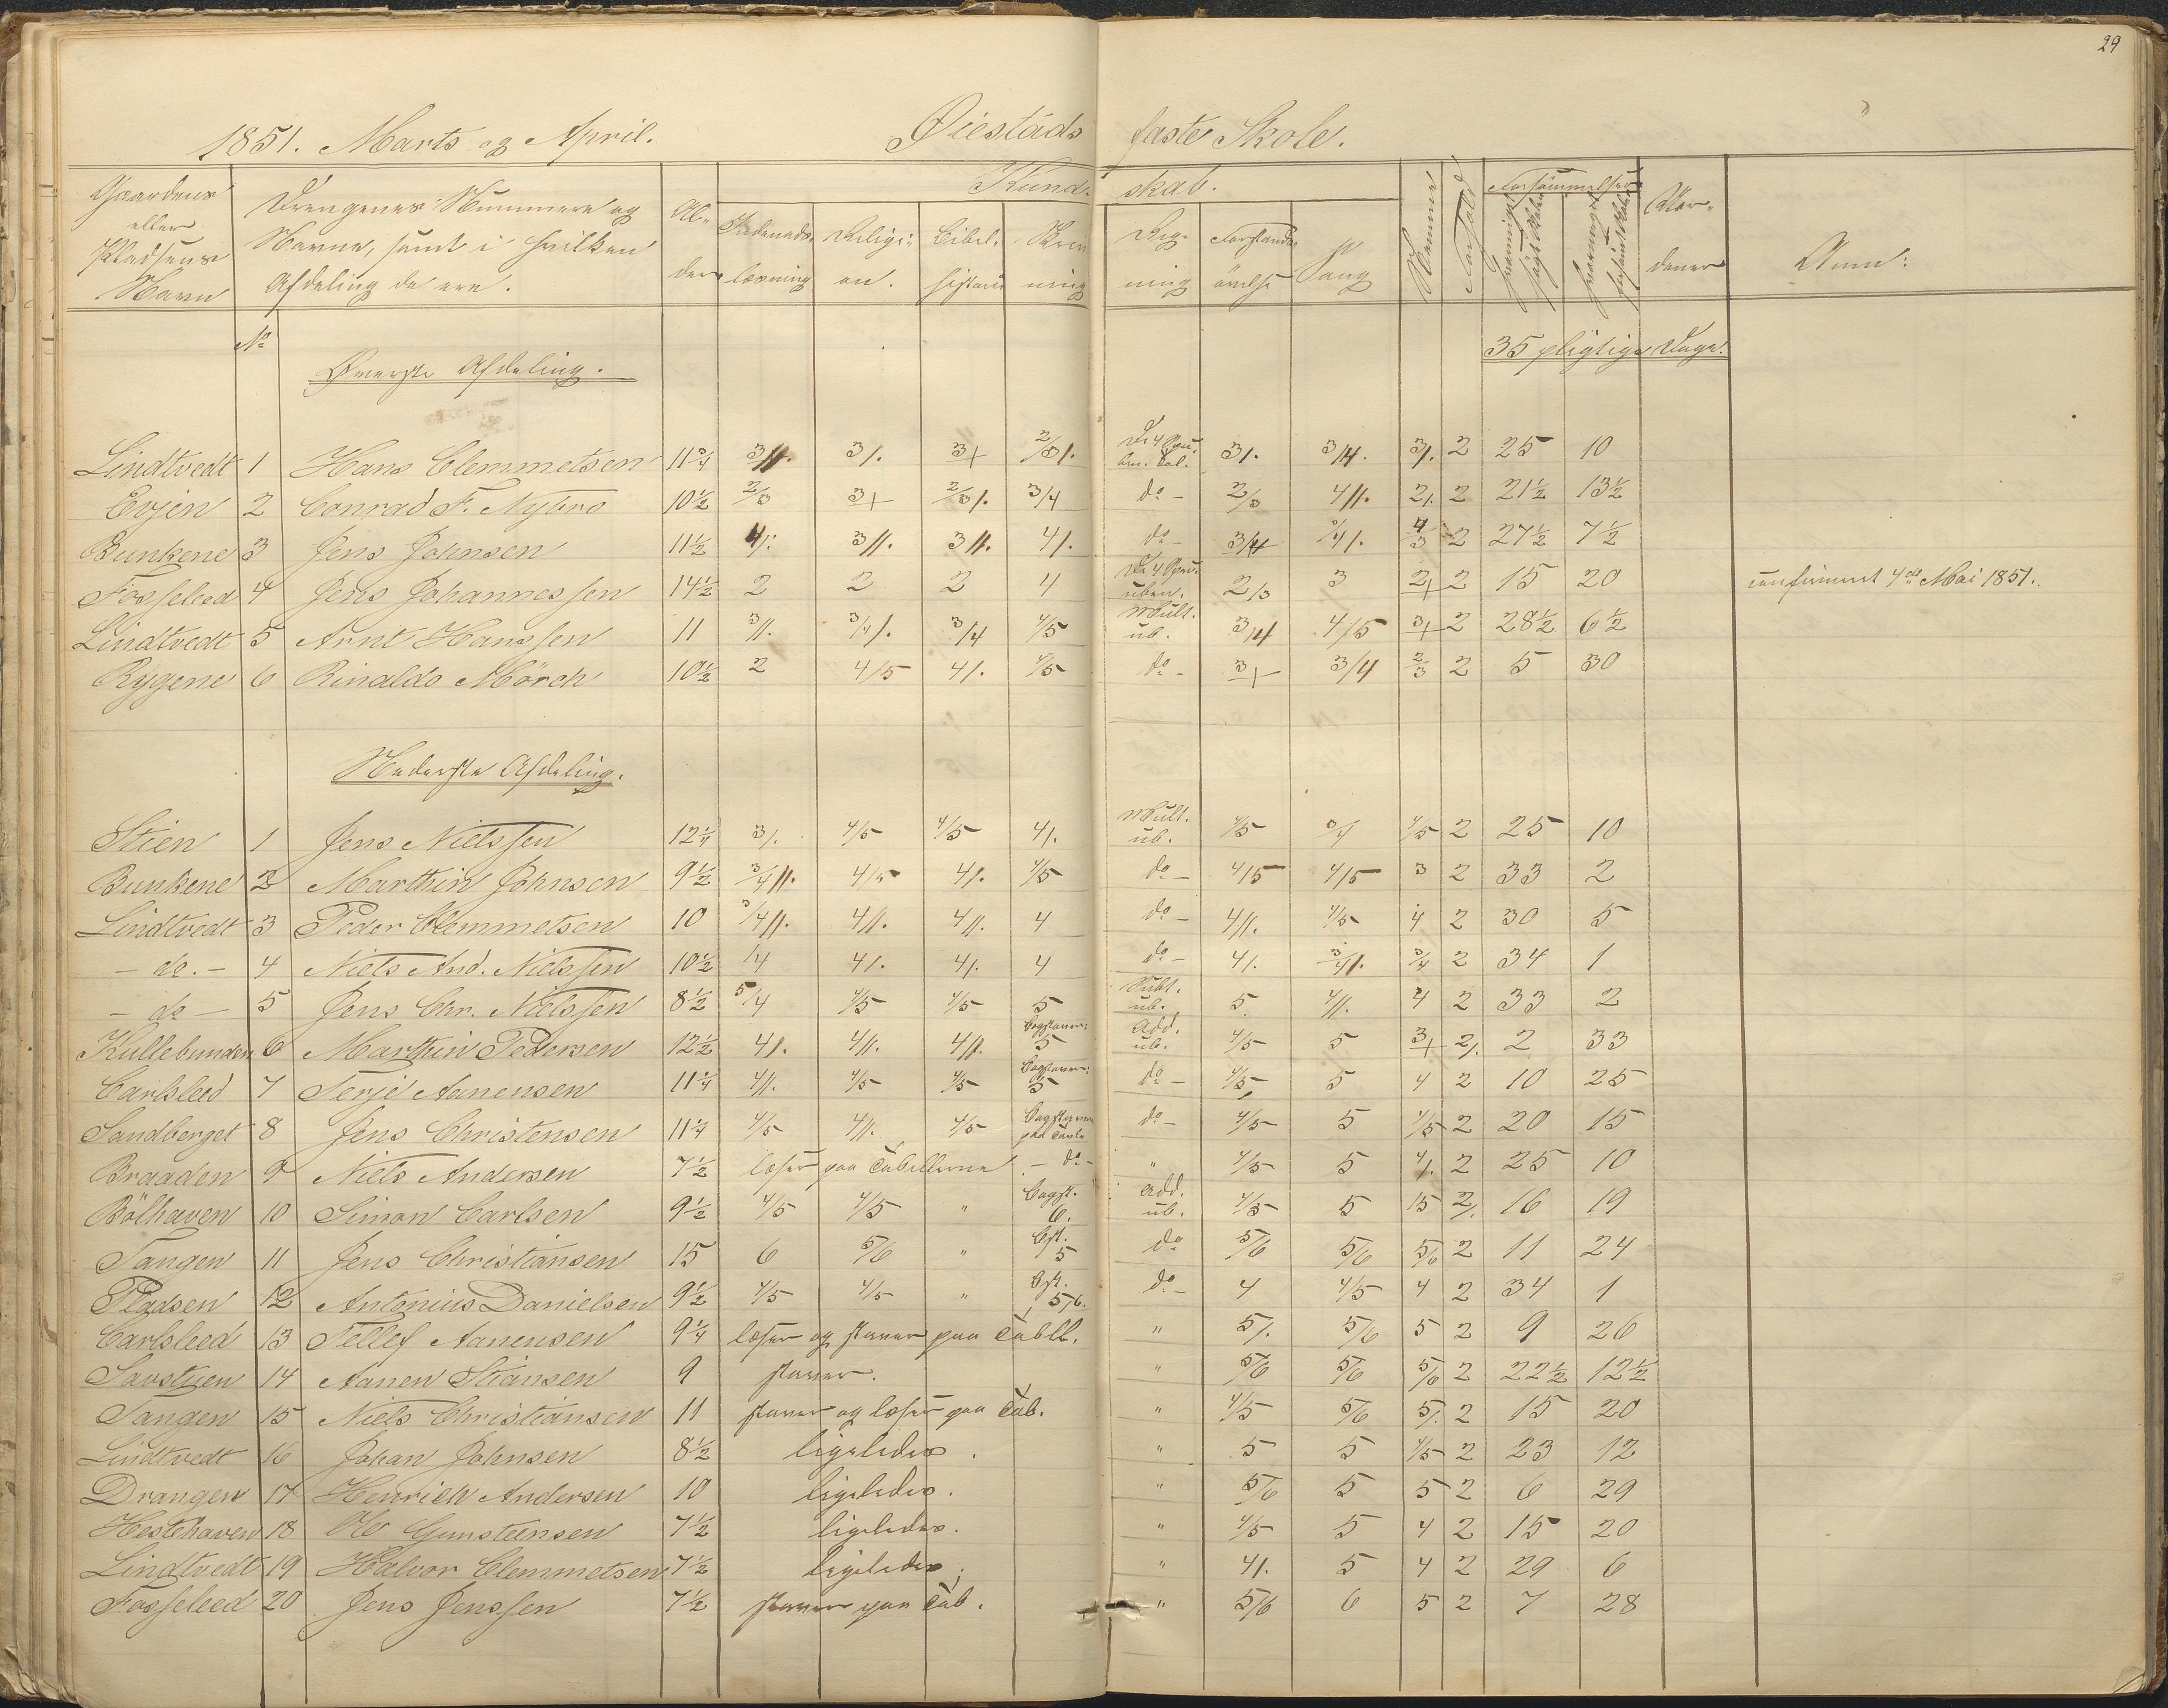 29
1851. Marts og April. Øiestads faste Skole.
Gaardens eller Pladsens Navn
Drengenes Nummere og Navne, samt i hvilken Afdeling de ere.
Al- der
Kund- skab.
Indenads- læsning
Religi- on.
Bibel- historie
Skriv- ning
Reg- ning
Forstands- øvelse
Sang
Nemme
Forhold
Forsømmelser
Mo- dener
Anm:
No
Øverste Afdeling.
35 pligtige Dage.
Lindtvedt 1 Hans Clemmetsen 11 3/4 3//. 3/. 3+ 2/3/. De 4 Spec. 3/. 3/4. 3/. 2 25 10
Evjen 2 Conrad F. Nybro 10 1/2 2/3 3+ 2/3/. 3/4 do - 2/3 4//. 2/. 2 21 1/2 13 1/2
Bunkene 3 Jens Johnsen 11 1/2 4/. 3//. 3//. 4/. do - 3/4 3/4/. 4/3 2 27 1/2 7 1/2
Fosseleed 4 Jens Johannessen 14 1/2 2 2 2 4 De 4 Spec. uben. 2/3 3 2+ 2 15 20 confirmert 4de Mai 1851.
Lindtvedt 5 Arnt Hanssen 11 3//. 3/4/. 3/4 4/5 Mult. ub. 3/4 4/5 3+ 2 28 1/2 6 1/2
Rygene 6 Rinaldo Mörch 10 1/2 2 4/5 4/. 4/5 do - 3+ 3/4 2/3 2 5 30
Nederste Afdeling.
Stien 1 Jens Nielssen 12 1/4 3/. 4/5 4/5 4/. Mult. ub. 4/5 3/4 4/5 2 25 10
Bunkene 2 Marthin Johnsen 9 1/2 3/4//. 4/5 4/. 4/5 do - 4/5 4/5 3 2 33 2
Lindtvedt 3 Peder Clemmetsen 10 3/4//. 4//. 4//. 4 do - 4//. 4/5 4 2 30 5
- do. - 4 Niels And. Nielssen 10 1/2 4 4/. 4/. 4 do - 4/. 3/4/. 3/4 2 34 1
- do - 5 Jens Chr. Nielssen 8 1/2 5/4 4/5 4/5 5 Subt. ub. 5 4//. 4 2 33 2
Kullebunden 6 Marthin Pedersen 12 1/2 4/. 4//. 4//. Bogstaver: 5 Add. ub. 4/5 5 3+ 2/. 2 33
Carlsleed 7 Terje Aanensen 11 1/4 4//. 4/5 4/5 Bogstaver: 5 do - 4/5 5 4 2 10 25
Sandberget 8 Jens Christensen 11 1/4 4/5 4//. 4/5 Bogstaver paa Tavle do - 4/5 5 4/5 2 20 15
Braaden 9 Niels Andersen 7 1/2 læser paa Tabellerne - do - " 4/5 5 4/. 2 25 10
Bölhaven 10 Simon Carlsen 9 1/2 4/5 4/5 " Bogst. 6. Add. ub. 4/5 5 15 2/. 16 19
Tangen 11 Jens Christiansen 15 6 5/6 " Bst. 5 do 5/6 5/6 5/6 2 11 24
Pladsen 12 Antonius Danielsen 9 1/2 4/5 4/5 " Bst. 5/6. do - 4 4/5 4 2 34 1
Carlsleed 13 Tellef Aanensen 9 1/4 læser og staver paa Tabll. " 5/. 5/6 5 2 9 26
Savstuen 14 Aanen Stiansen 9 staver. " 5/6 5/6 5/6 2 22 1/2 12 1/2
Tangen 15 Niels Christiansen 11 staver og læser paa Tab. " 4/5 5/6 5/. 2 15 20
Lindtvedt 16 Johan Johnsen 8 1/2 ligeledes. " 5 5 4/5 2 23 12
Drangen 17 Henrich Andersen 10 ligeledes. " 5/6 5 5 2 6 29
Hestehaven 18 Ole Gunsteensen 7 1/2 ligeledes. " 4/5 5 4 2 15 20
Lindtvedt 19 Halvor Clemmetsen 7 1/2 ligeledes; " 4/. 5 4 2 29 6
Fosseleed 20 Jens Jenssen 7 1/2 staver paa Tab. " 5/6 6 5 2 7 28